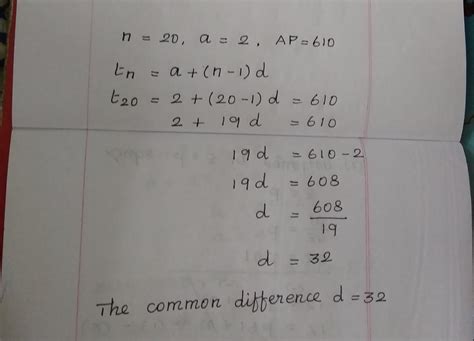 n = 20, a = 2, AP = 610
tn = a + (n-1) d
t20 = 2 + (20-1) d = 610
2 + 19 d = 610
19 d = 610 - 2
19 d = 608
d = 608/19
d = 32
The common difference d = 32